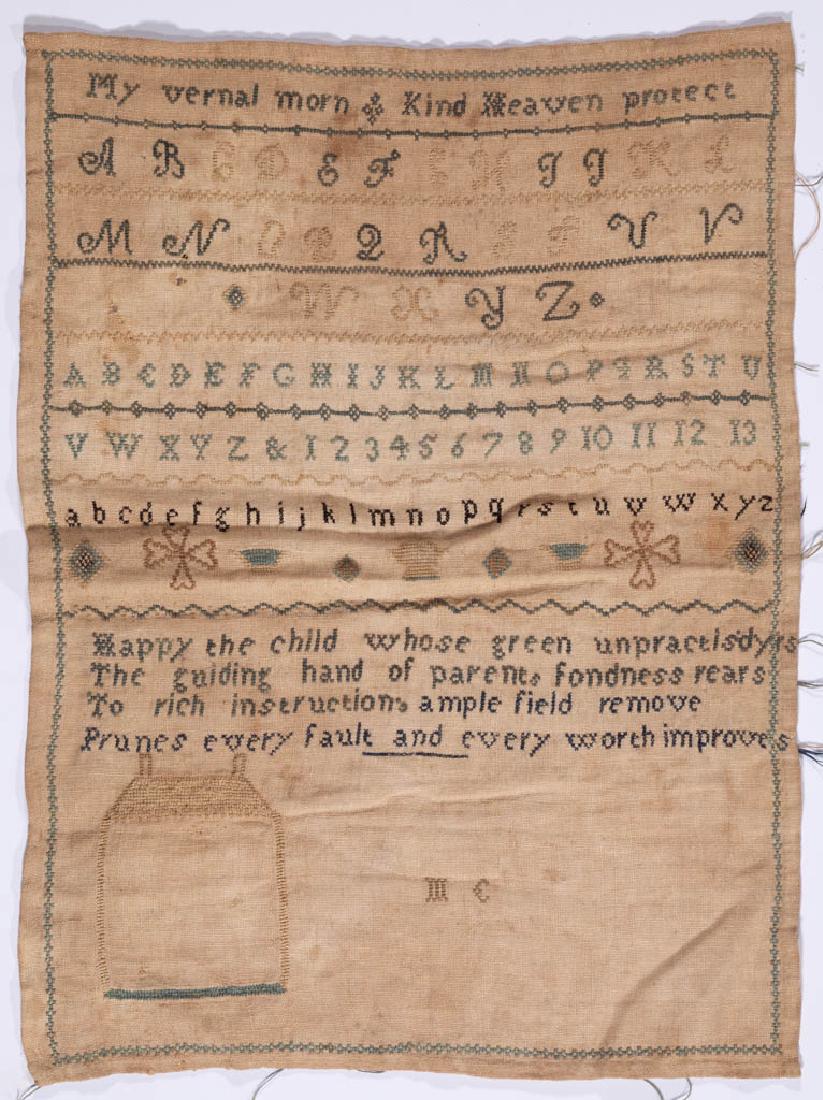 My vernal morn Kind Heaven protect
A B C D E F G H I J K L
M N O P Q R S T U V
W X Y Z
A B C D E F G H I J K L M N O P Q R S T U
V W X Y Z & 1 2 3 4 5 6 7 8 9 10 11 12 13
a b c d e f g h i j k l m n o p q r s t u v w x y z
Happy the child whose green unpractisd yrs
The guiding hand of parents fondness rears
To rich instructions ample field remove
Prunes every fault and every worth improves
M C